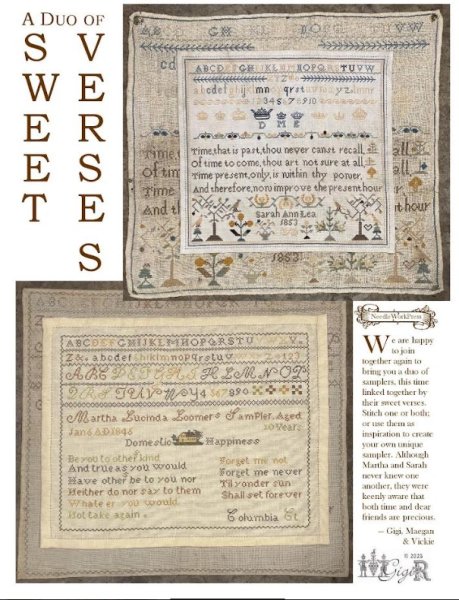 A DUO OF
SWEET
VERSES
ABCDEFGHIJKLMNOPQRSTUVW
abcdefghijklmnopqrstuv
1234567890
D M E
Time, that is past, thou never canst recall,
Of time to come, thou art not sure at all,
Time present, only, is within thy power,
And therefore, now improve the present hour
Sarah Ann Lea
1853
1853
ABCDEFGHIJKLMNOPQRSTU
Z&. abcdefghiklmnopqrstuv
Martha Lucinda Loomers Sampler, Aged
Jan 6 AD 1846 10 Years
Domestic Happiness
Be you to other kind
And true as you would
Have other be to you nor
Neither do nor say to them
Whate er you would
Not take again.
Forget me not
Forget me never
Til yonder sun
Shall set forever
Columbia Ct
NEEDLEWORKPRESS
We are happy
to join
together again to
bring you a duo of
samplers, this time
linked together by
their sweet verses.
Stitch one or both;
or use them as
inspiration to create
your own unique
sampler. Although
Martha and Sarah
never knew one
another, they were
keenly aware that
both time and dear
friends are precious.
— Gigi, Maegan
& Vickie
© 2025
GigiR